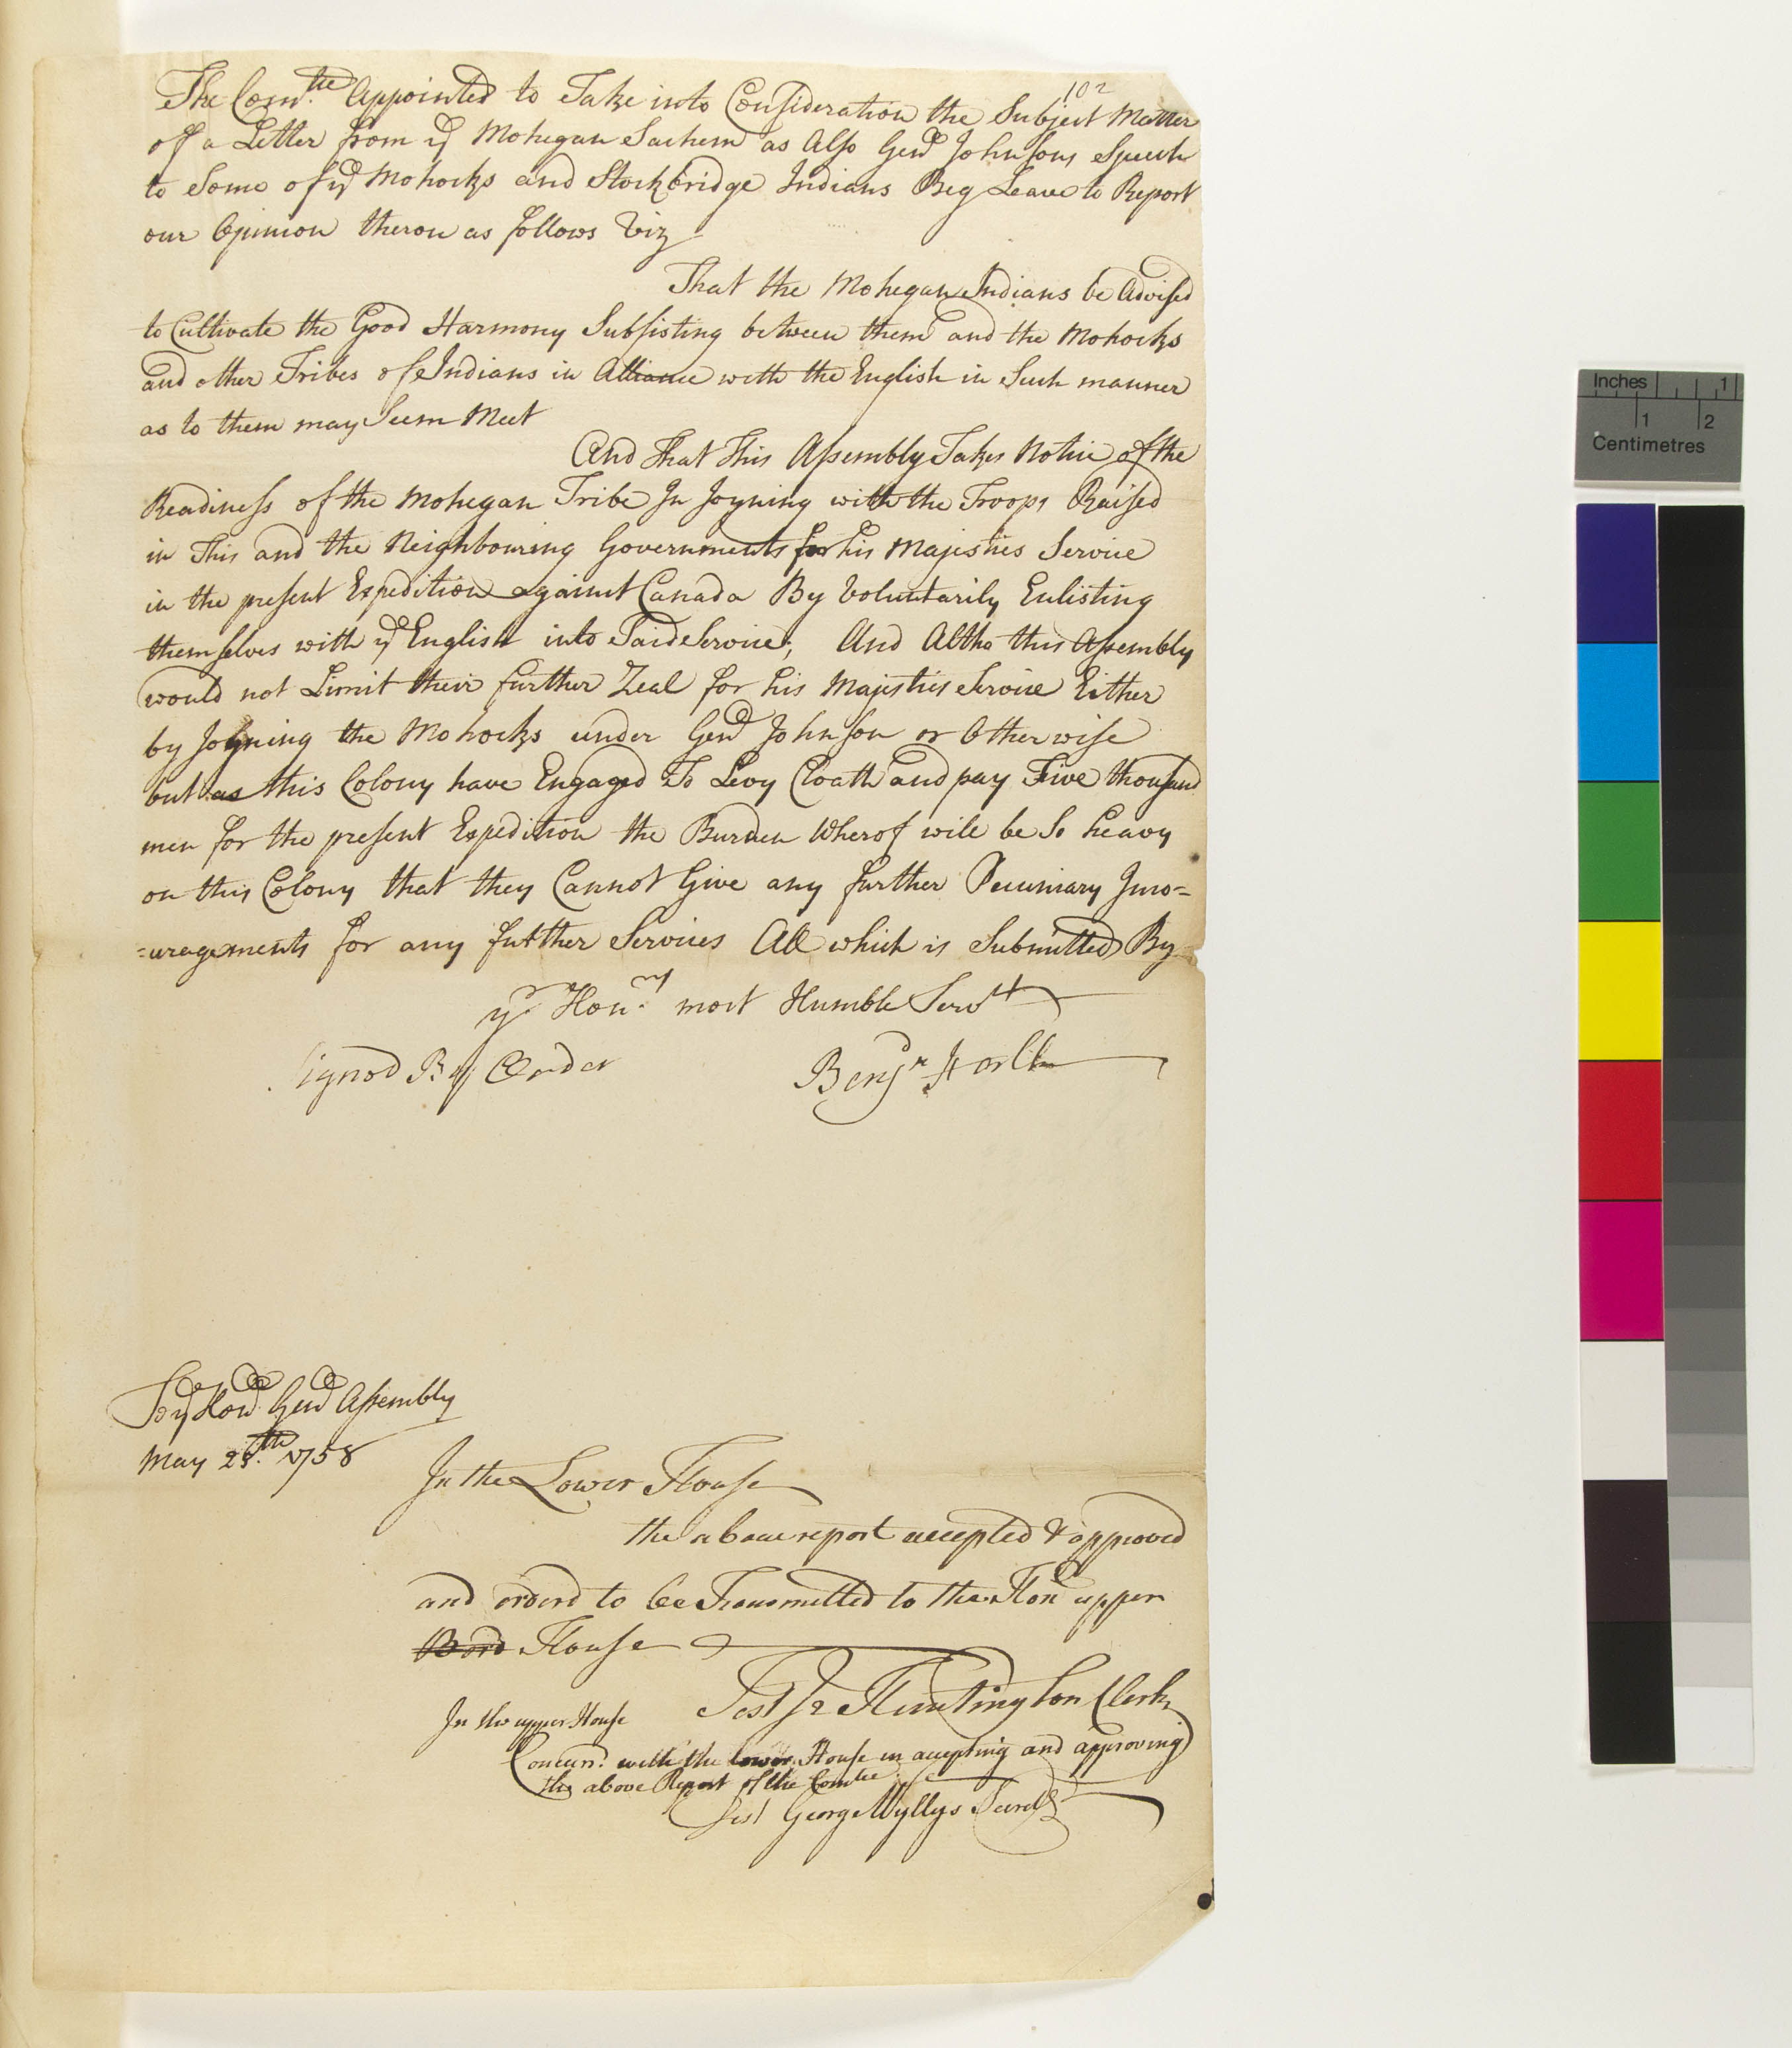 102
The Com.tee Appointed to Take into Consideration the Subject Matter
of a Letter from ye Mohegan Sachem as Also Genll Johnsons Speech
to Some of ye Mohocks and Stockbridge Indians Beg Leave to Report
our Opinion theron as follows Viz
That the Mohegan Indians be Advised
to Cultivate the Good Harmony Subsisting between them and the Mohocks
and other Tribes of Indians in Alliance with the English in Such manner
as to them may Seem Meet
And That This Assembly Takes Notice of the
Readiness of the Mohegan Tribe In Joyning with the Troops Raised
in This and the Neighbouring Governments for his Majesties Service
in the present Expedition against Canada By Voluntarily Enlisting
themselves with ye English into Said Service; And Altho this Assembly
would not Limit their further Zeal for his Majesties Service Either
by Joyning the Mohocks under Genll Johnson or Otherwise
but as this Colony have Engaged To Levy Cloath and pay Five thousand
men for the present Expedition the Burden Wherof will be So heavy
on this Colony that they Cannot Give any further Pecuniary Inco=
=uragements for any further Services All which is Submitted By
yr Honrs most Humble Servtt
Signed By Order Benjn Hall
To ye Honll Genll Assembly
May 25.th 1758
In the Lower House
the above report accepted & approved
and orderd to be Transmitted to the Honl upper
Bord House
Test Jr Huntington Clerk
In the upper House
Concurd. with the lower House in accepting and approving
the above Report of the Comtee
Test George Wyllys Secrety